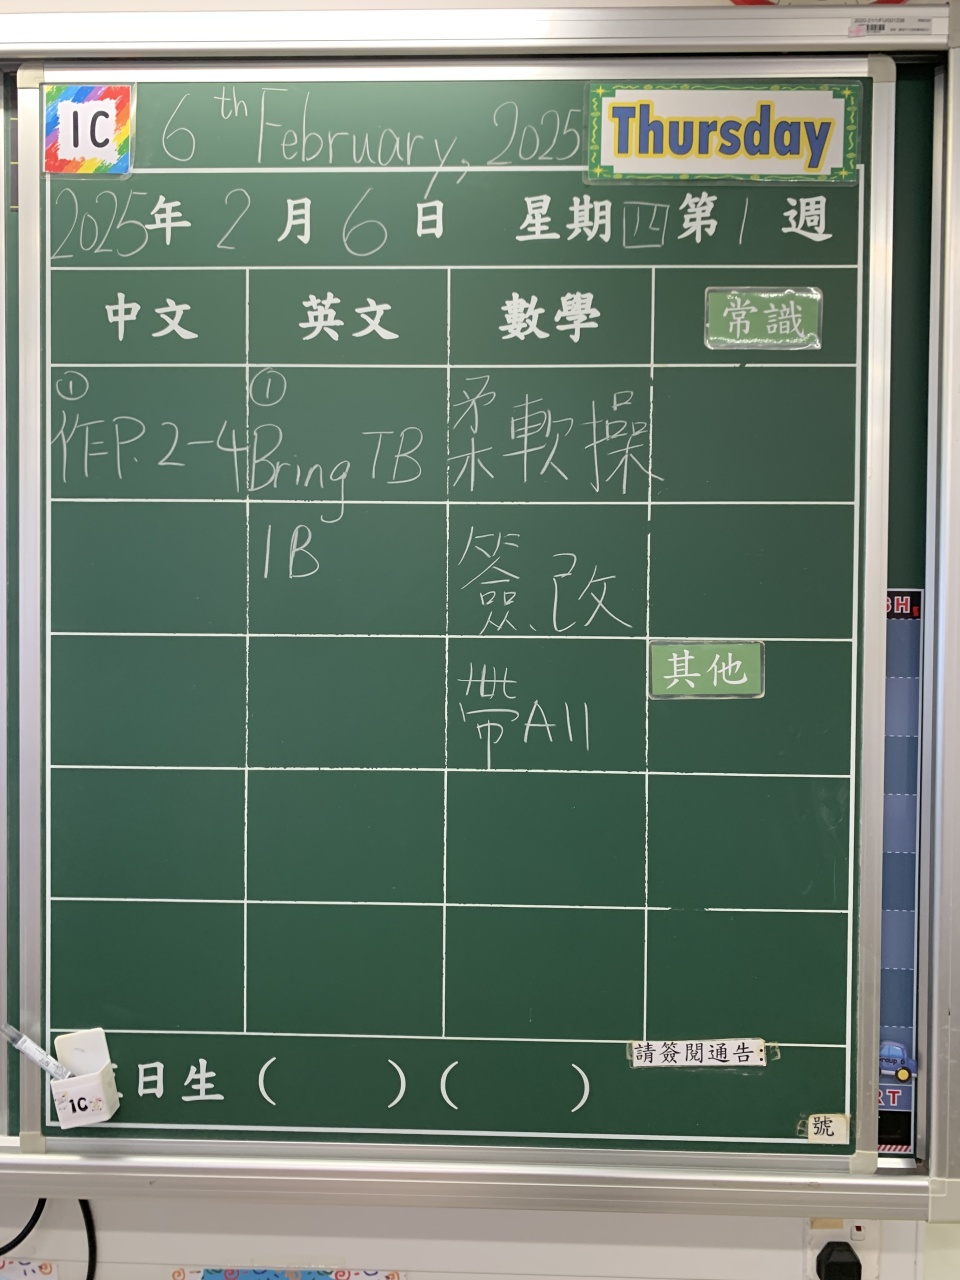 1C 6th February, 2025 Thursday
2025年 2 月 6 日 星期四 第 1 週
中文 英文 數學 常識
① ① 柔軟操
作P. 2-4 Bring TB
1B 簽、改
帶All 其他
日生 ( ) ( ) 請簽閱通告:
1C 號
RT